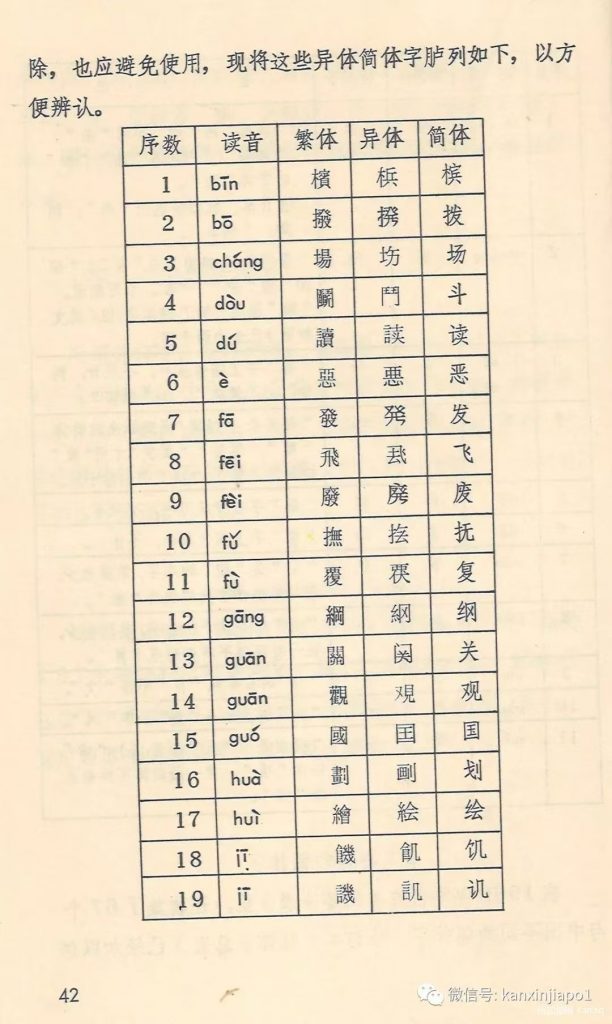 除，也应避免使用，现将这些异体简体字胪列如下，以方
便辨认。
序数 读音 繁体 异体 简体
1 bīn 檳 梹 槟
2 bō 撥 撥 拨
3 cháng 場 坊 场
4 dòu 鬭 鬥 斗
5 dú 讀 読 读
6 è 惡 悪 恶
7 fā 發 発 发
8 fēi 飛 飞
9 fèi 廢 廃 废
10 fǔ 撫 抚
11 fù 覆 复
12 gāng 綱 纲
13 guān 關 関 关
14 guān 觀 观
15 guó 國 囯 国
16 huà 劃 划
17 huì 繪 絵 绘
18 jī 饑 飢 饥
19 jī 譏 訊 讥
42
微信号: kanxinjiapo1